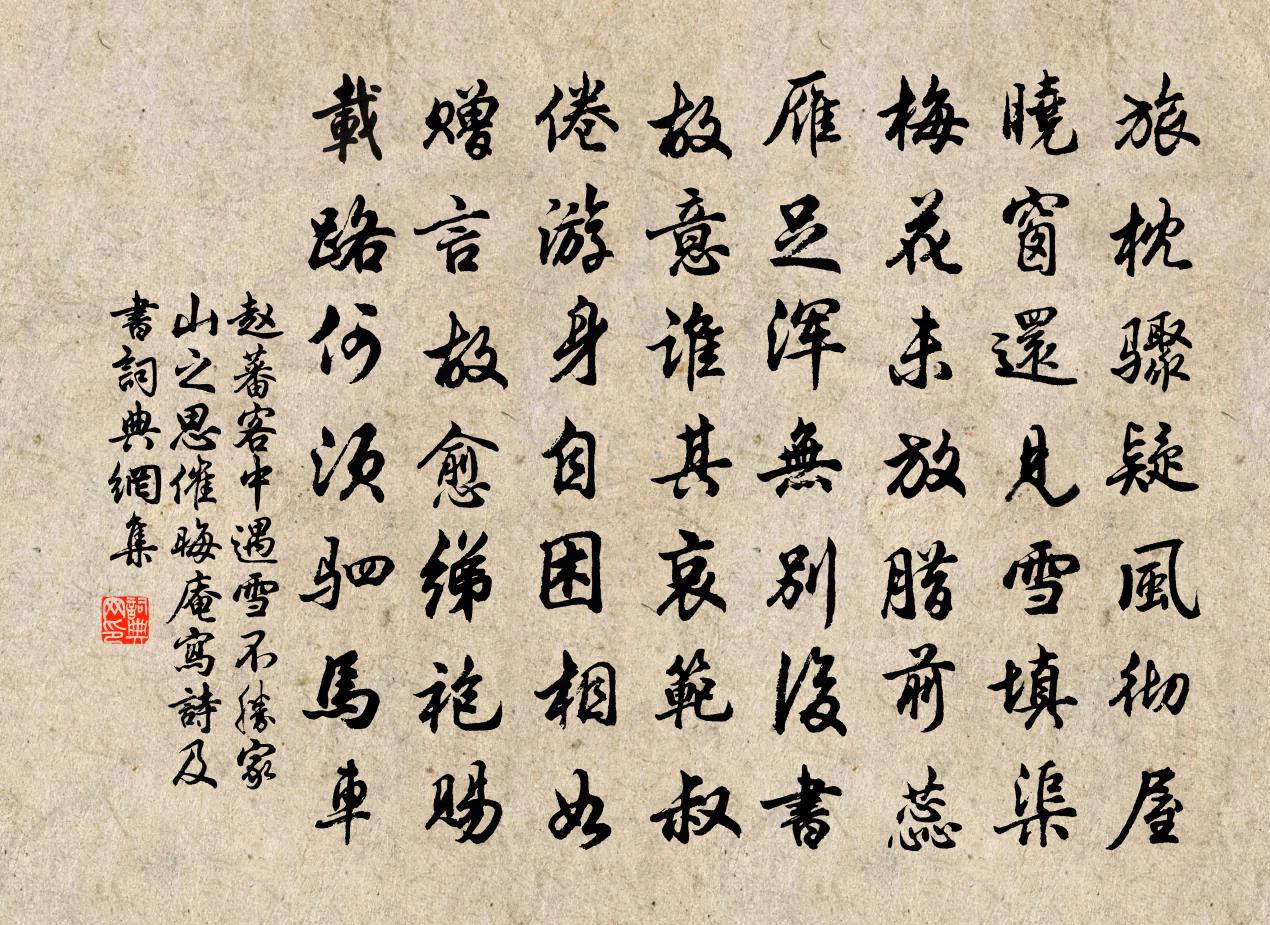 旅枕驟疑風彻屋
曉窗還見雪填渠
梅花未放腊前蕊
雁足浑無別後書
故意誰其哀範叔
倦游身自困相如
赠言故愈绨袍賜
載路何须驷馬車
赵蕃客中遇雪不勝家
山之思催晦庵寫詩及
書詞典網集
詞典
网印